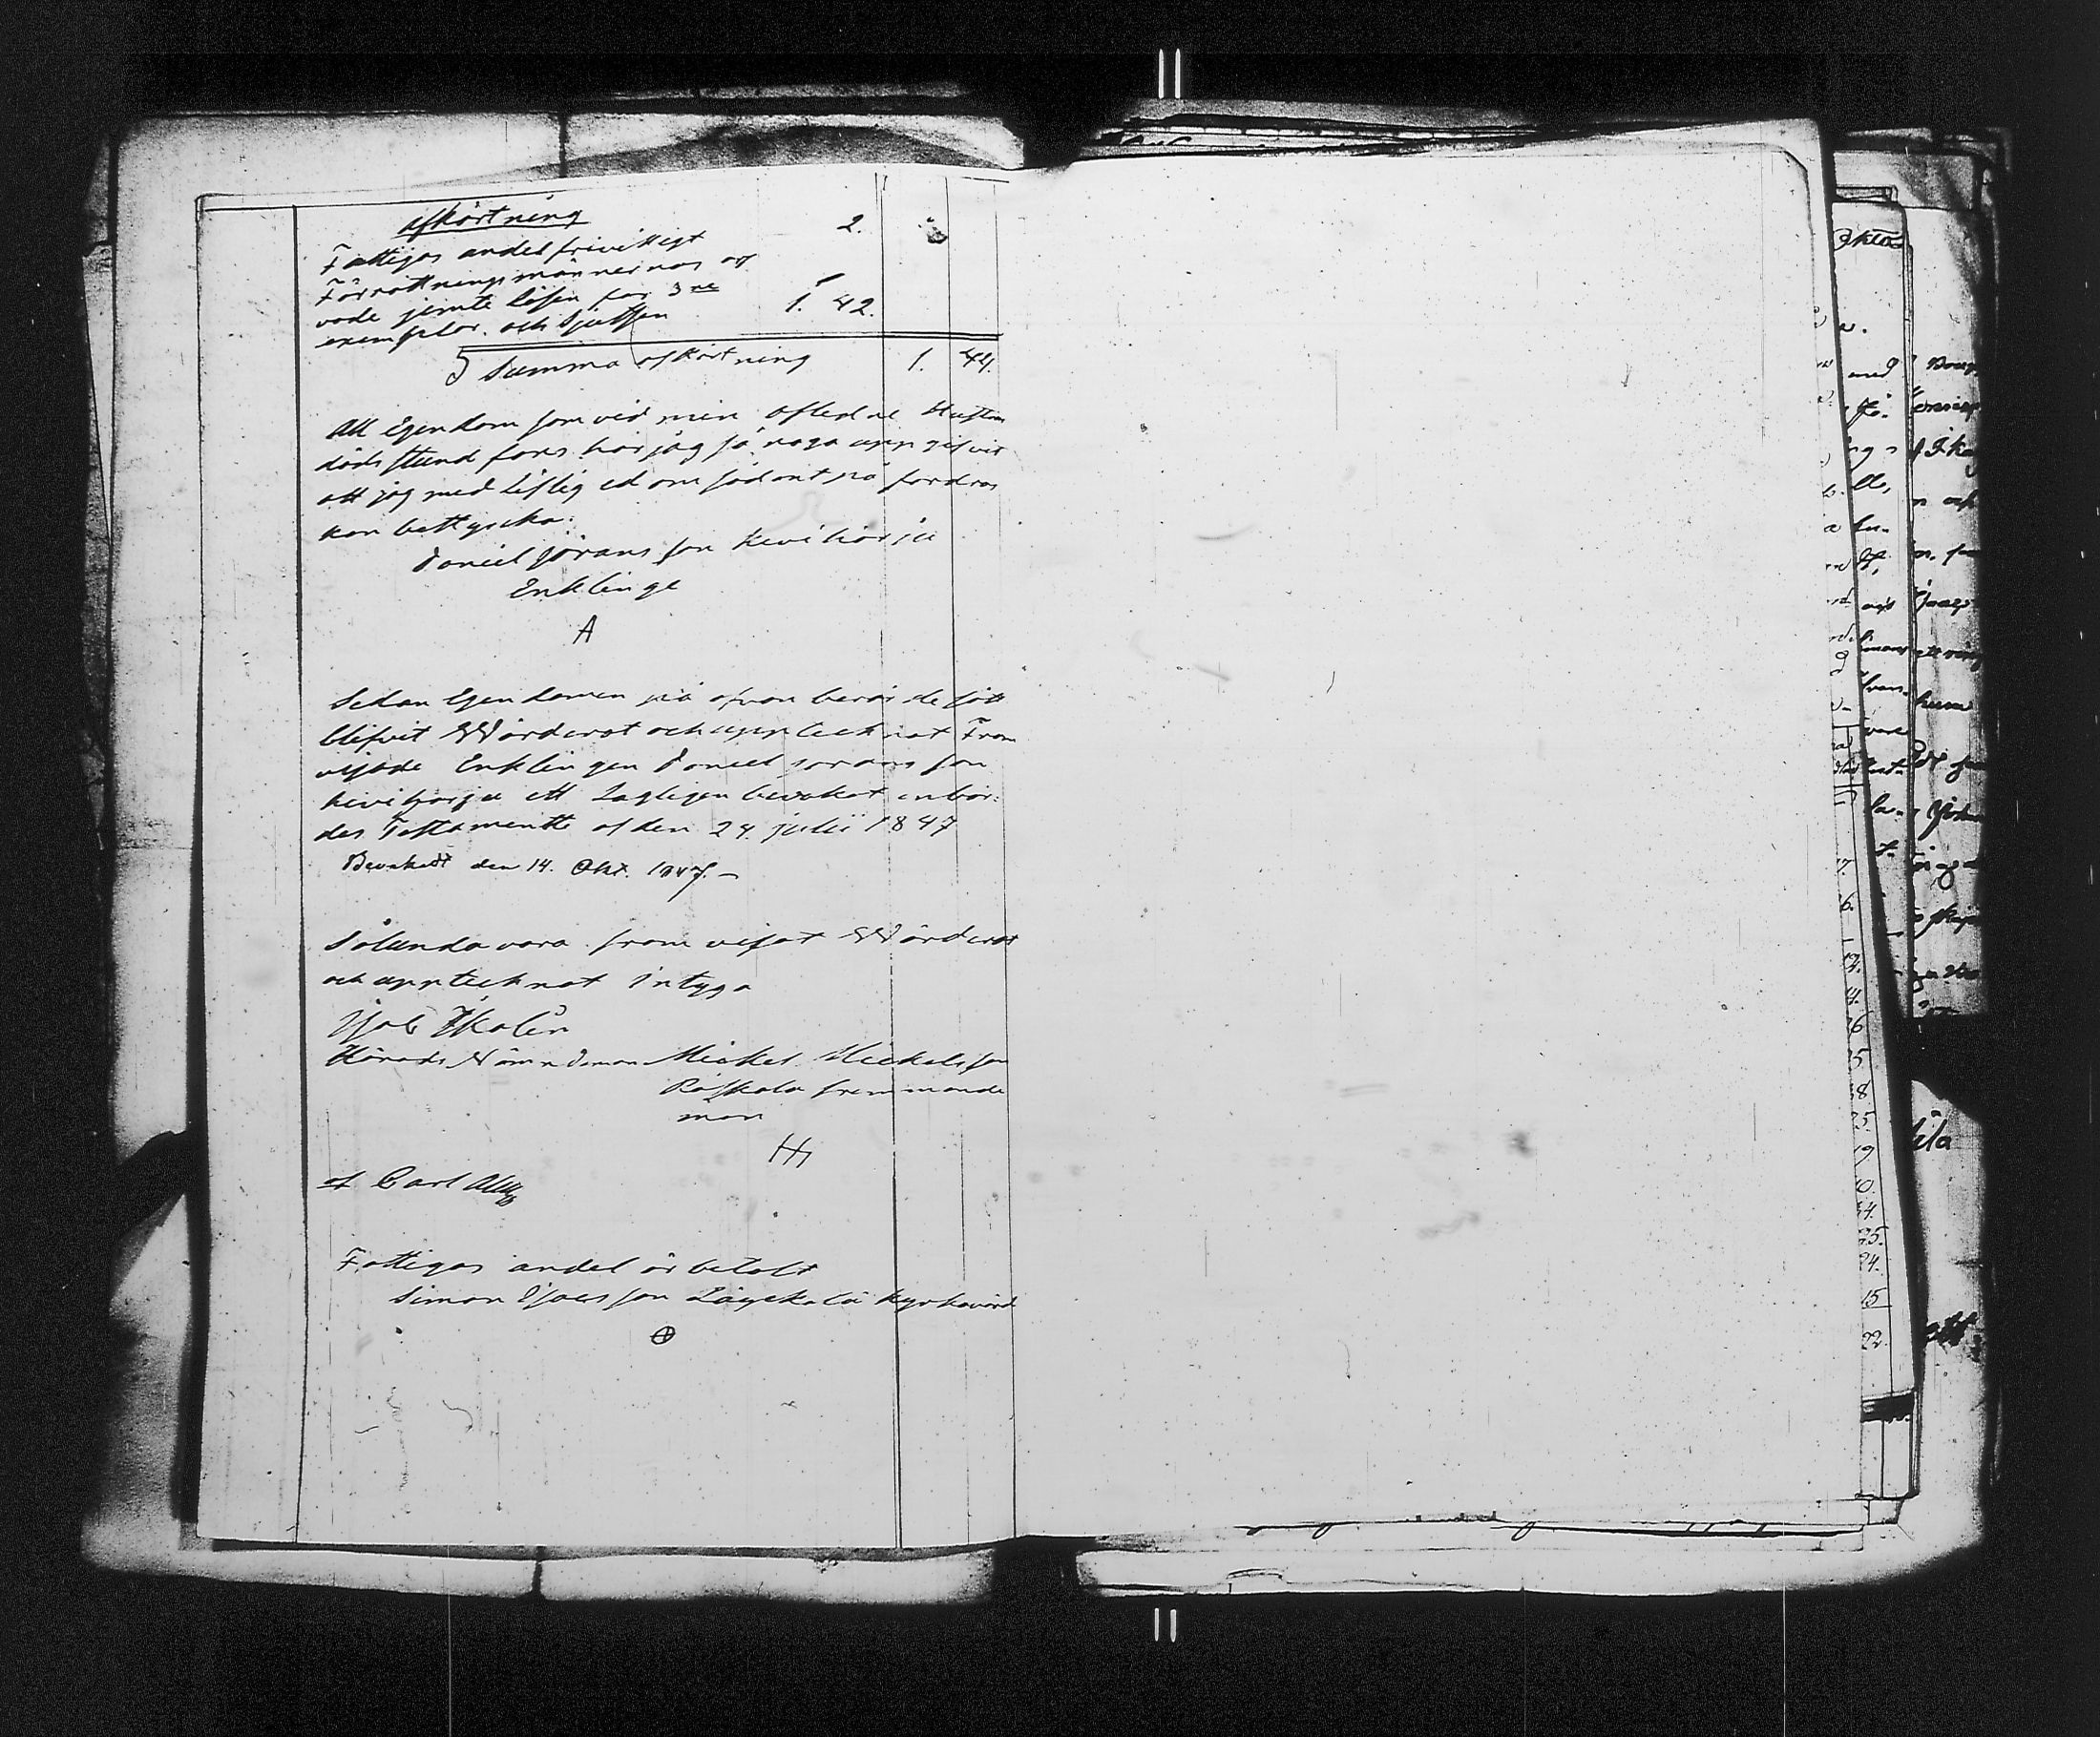 afkortning
Fattigas andel frivilligt 2.
Förrättningsmännernas ar
vode jemte lösen för 3ne
exemplar. och Skjutsen 1. 42.
Summa afkortning 1. 44.
All Egendom som vid min afledne Hustrus
dödsstund fans har jag så noga uppgifvit
att jag med liflig ed om sådant på fordras
kan bettyrcka.
Daniel Jöransson Kiviharju
Enklinge
A
Sedan Egendomen på ofvan berörde sätt
blifvit Wärderat och upptecknat Fram
visade Enklingen Daniel Joransson
kiviharju ett Lagligen bevakat inbör:
des Testamentte af den 24. julii 1847
Bevakadt den 14. Okt. 1847. –
Sålunda vara fram visat Wärderat
och upptecknat Intyga
Härads Nämndeman Mickel Mickelsson
man
af Carl
Fattigas andel är betalt
Simon Isacsson kyrkovärd